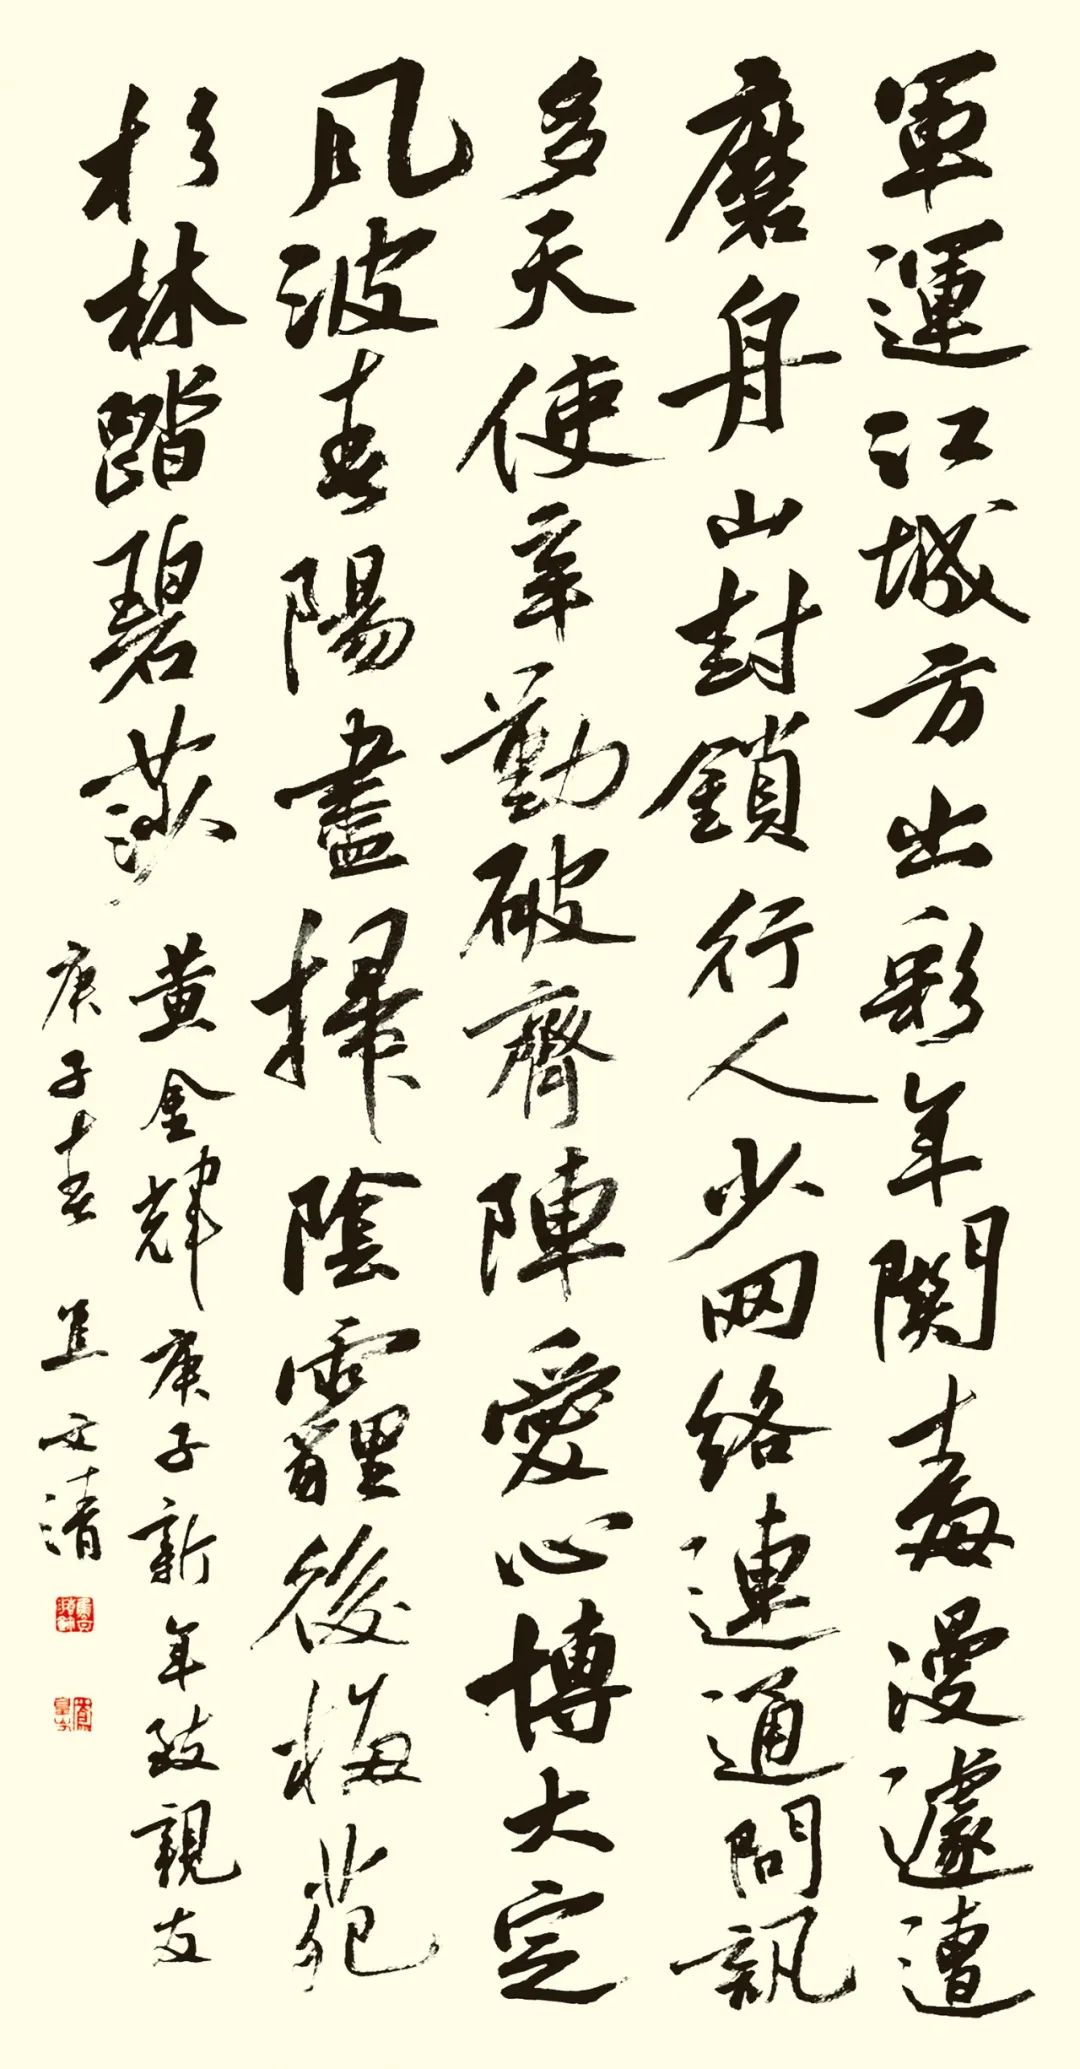 軍運江城方出彩年關毒漫遽遭
磨舟山封鎖行人少网絡連通問訊
多天使辛勤破齊陣愛心博大定
风波春陽盡掃陰霾後梅苑
杉林踏碧莎
黄金輝庚子新年致親友
庚子春文清